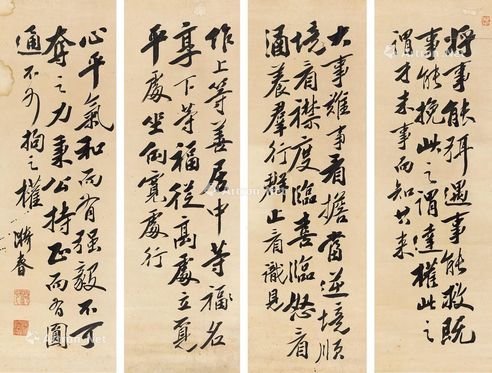 將事能弭遇事能救既
事能挽此之謂達權此之
謂才未事而知其來
大事難事看擔當逆境順
境看襟度臨喜臨怒看
涵養羣行羣止看識見
作上等善居中等福名
享下等福從高處立覓
平處坐倒寬處行
心平氣和而有强毅不可
奪之力秉公持正而有圓
通不可拘之權
春